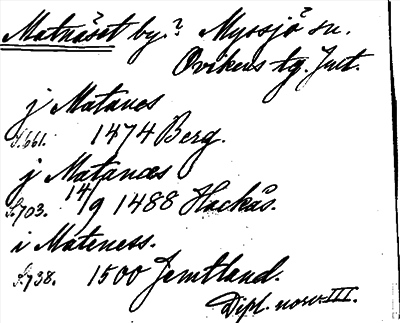 Matnäset by? Myssjö sn.
Ovikens tg. Jmt.
j Matanes
S.661. 1474 Berg.
j Matanæs
S.703. 14/9 1488 Hackås.
i Mateness.
S.738. 1500 Jemtland.
Dipl. norv. III.